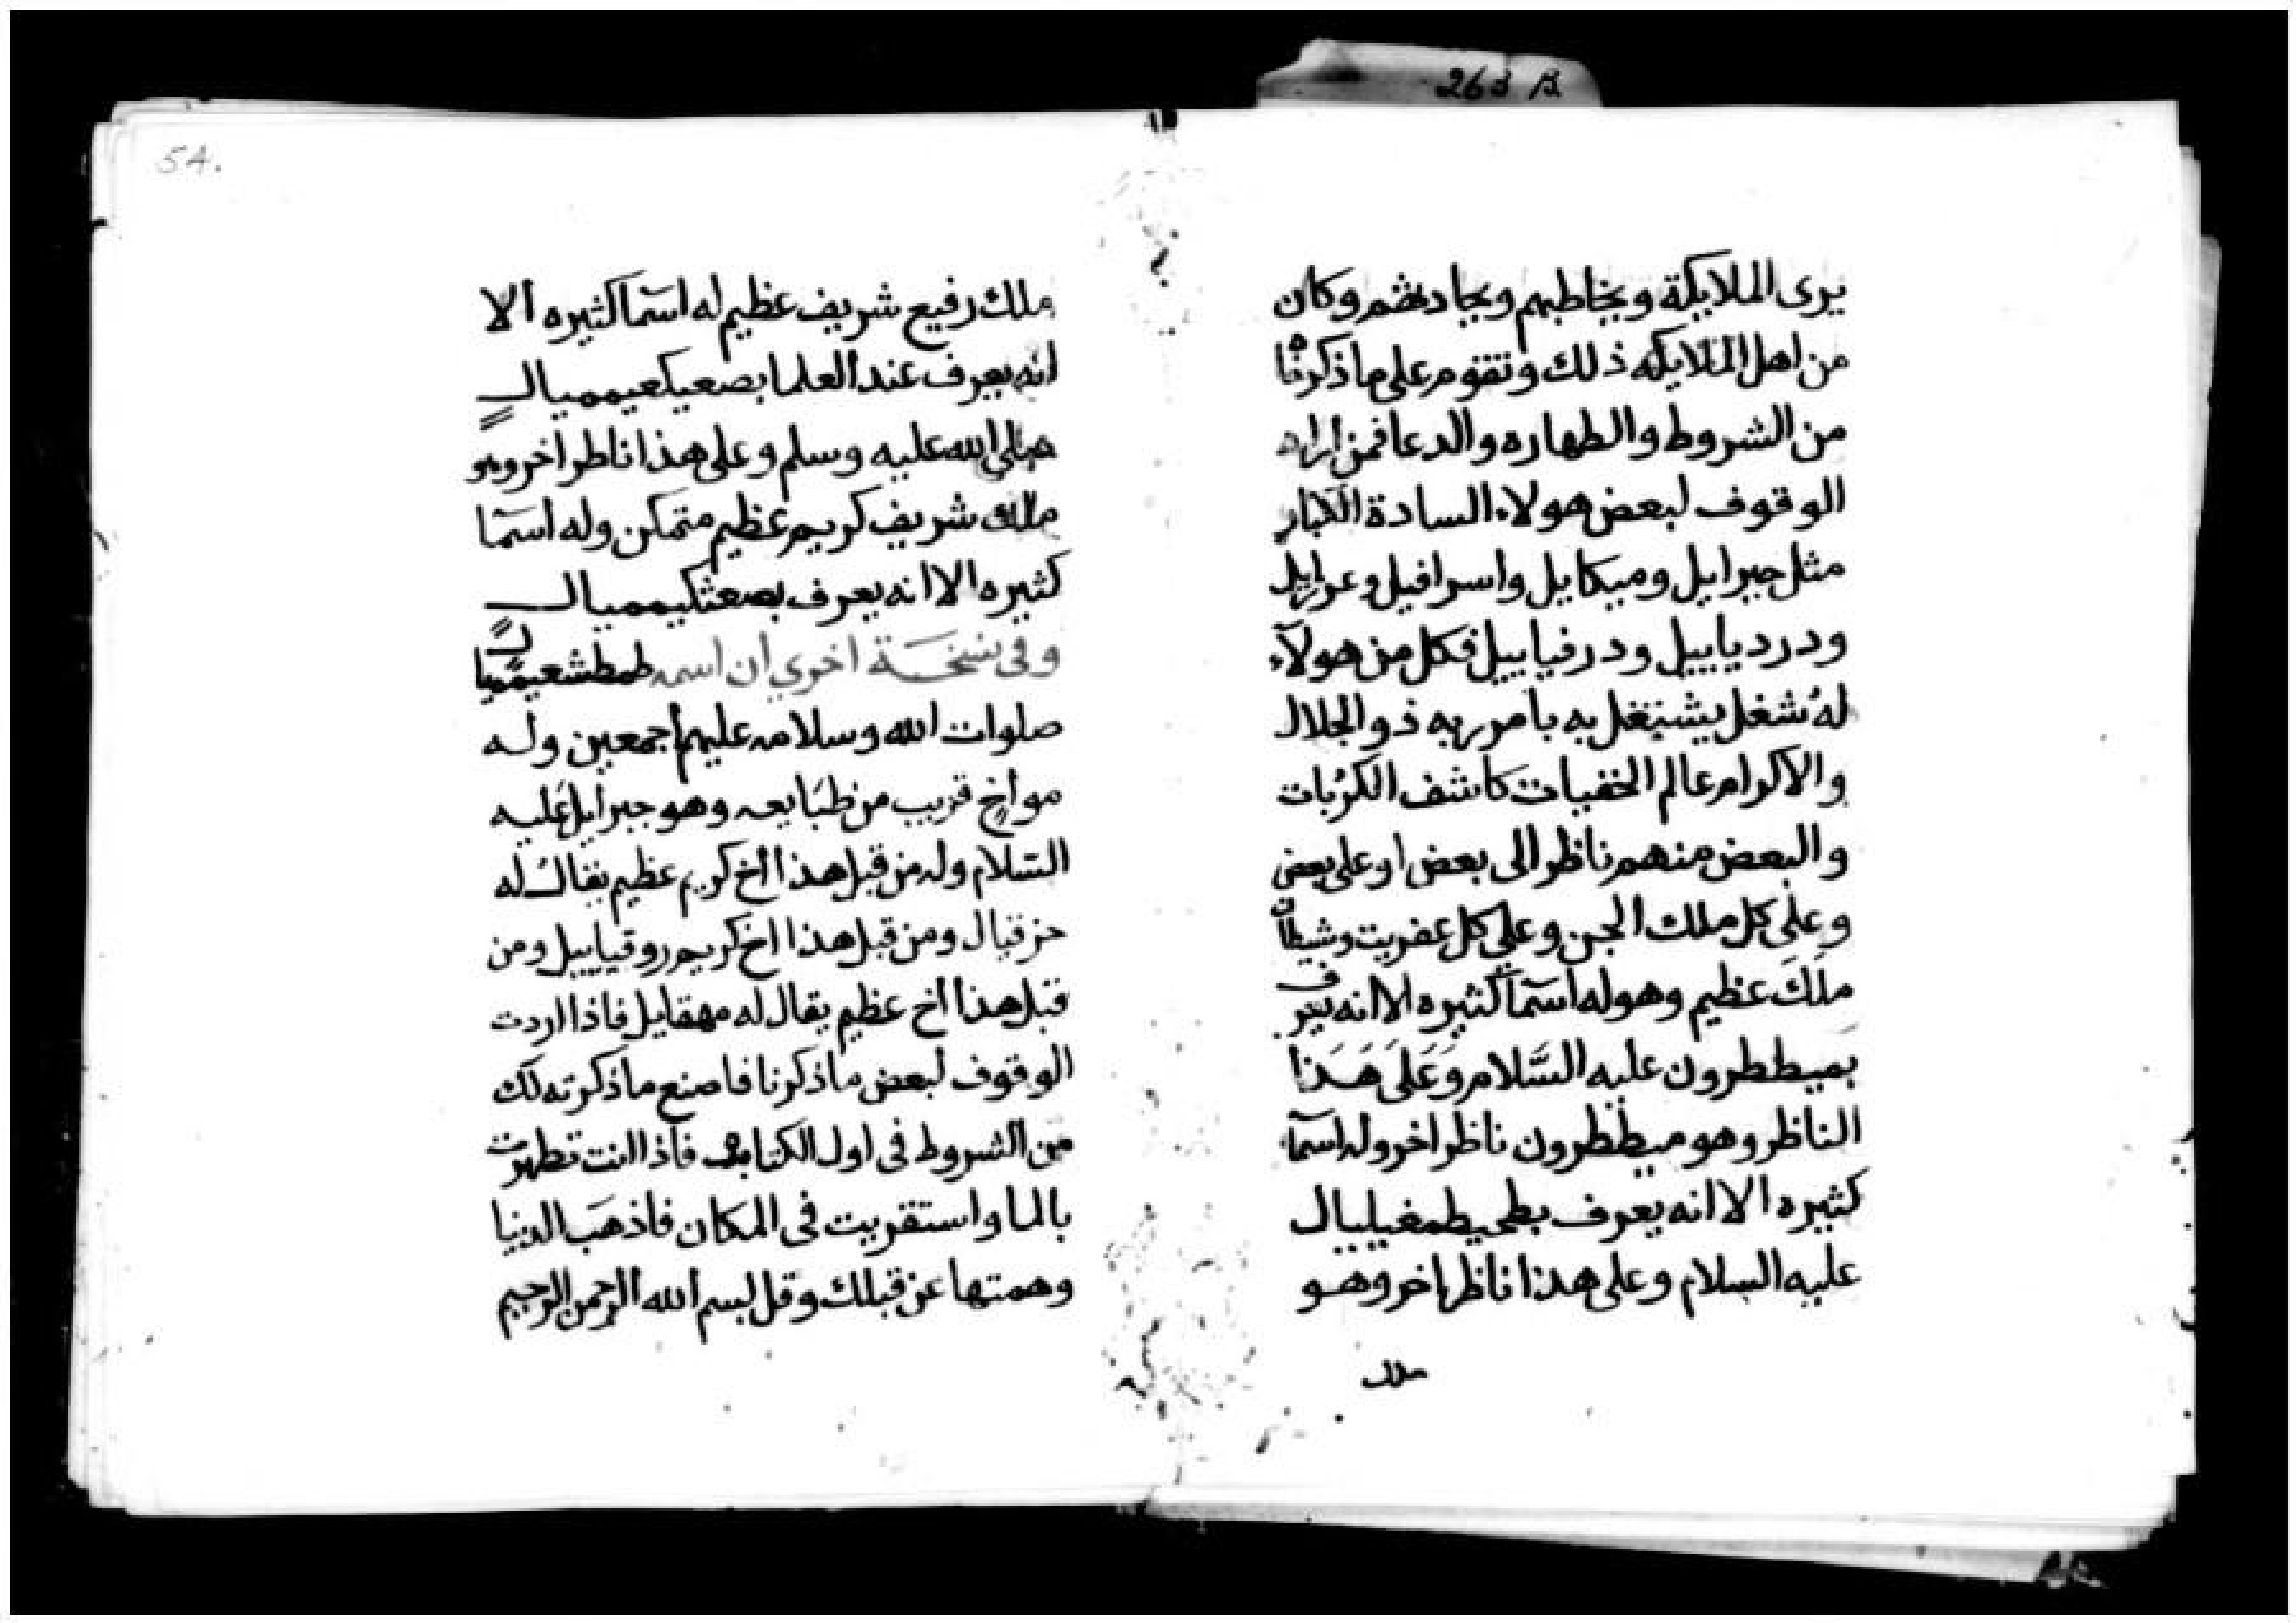 263 B
يرى الملايكة ويخاطبهم ويحادثهم وكان
من اهل الملايكه ذلك وتقوم على ماذكرناه
من الشروط والطهاره والدعا فمن اراد
الوقوف لبعض هولاء السادة الكبار
مثل جبرايل وميكايل واسرافيل وعزرايل
ودردياييل ودرفياييل فكل من هولآء
لهُ شغل يشتغل به بامر ربه ذو الجلال
والاكرام عالم الخفيات كاشف الكرُبات
والبعض منهم ناظر الى بعض او على بعض
وعلى كل ملك الجن وعلى كل عفريت وشيطان
ملَكَ عظيم وهو له اسمآ كثيره الا انه يعرف
بميططرون عليه السَّلام وَعَلَى هَـذا
الناظر وهو ميططرون ناظر اخر وله اسمآ
كثيره الا انه يعرف بطحيطمغيليال
عليه السلام وعلى هذا ناظر اخر وهـو
ملك
54.
ملك رفيع شريف عظيم له اسمآ كثيره الا
انه يعرف عند العلما بصعيكعيمميال
صلى الله عليه وسلم وعلى هذا ناظر اخر وهو
ملك شريف كريم عظيم متمكن وله اسمآ
كثيره الا انه يعرف بصعثكيمميال
وفى نسخـة اخرى ان اسمه طمطشعيميال
صلوات الله وسلامه عليهم اجمعين ولـه
مواخٍ قريب من طبَايعه وهو جبرايل عَليـه
السّلام وله من قبل هذا اخ كريم عظيم يقالُ له
حزقيال ومن قبل هذا اخ كريم روقياييل ومن
قبل هذا اخ عظيم يقال له مهقاييل فاذا اردت
الوقوف لبعض ماذكرنا فاصنع ماذكرته لك
من الشروط فى اول الكتاب فاذا انت تطهرت
بالما واستقريت فى المكان فاذهَب الدنيا
وهمتها عن قبلك وقل بسم الله الرحمن الرحيم